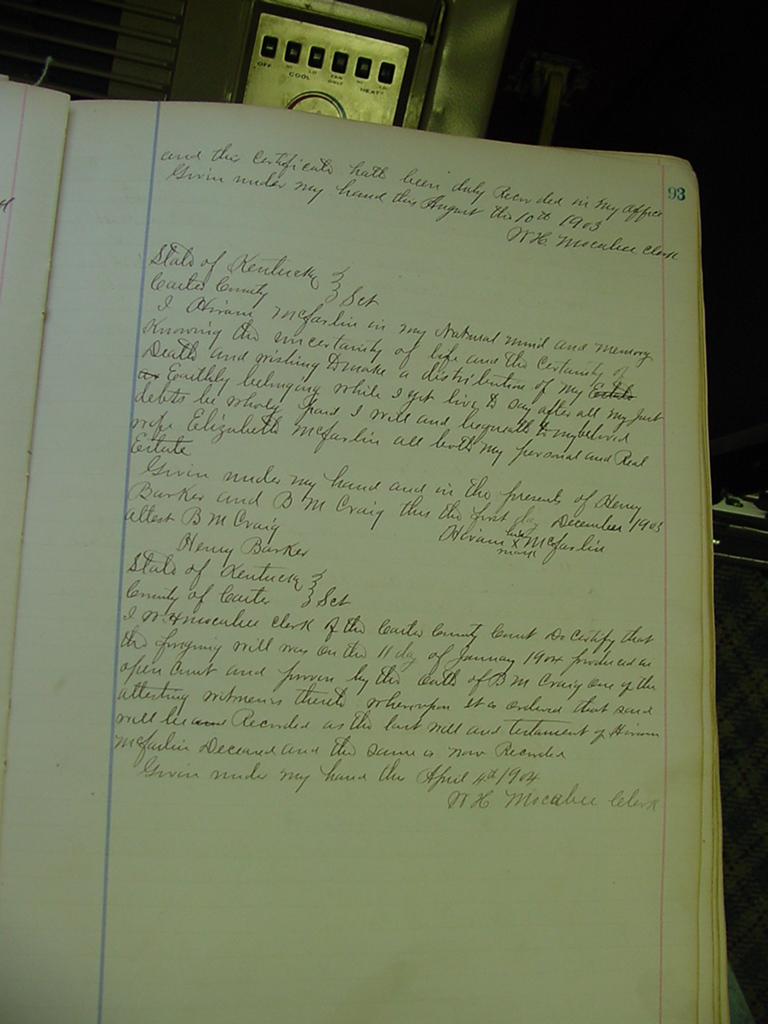 OFF HI LO FAN ONLY HI LO
COOL HEAT
93
and this certificate hath been duly Recorded in my office
Given under my hand this August the 10th 1903
W H Mocabee Clerk
State of Kentucky }
Carter County } Sct
I Hiram McFarlin in my Natural mind and memory
Knowing the uncertainty of life and the certainty of
Death and wishing to make a distribution of my Estate
Earthly belonging while I yet live to say after all my just
debts be wholy paid I will and bequeath to my beloved
wife Elizabeth McFarlin all both my personal and Real
Estate
Given under my hand and in the presents of Henry
Barker and B M Craig this the first day December 1903
attest B M Craig Hiram his x mark McFarlin
Henry Barker
State of Kentucky }
County of Carter } Sct
I W H Mocabee Clerk of the Carter County Court Do certify that
the forgoing will was on the 11 day of January 1904 produced in
open Court and proven by the oath of B M Craig one of the
attesting witnesses thereto whereupon it is ordered that said
will be and Recorded as the last will and testament of Hiram
McFarlin Deceased and the same is now Recorded
Given under my hand this April 4th 1904
W H Mocabee Clerk